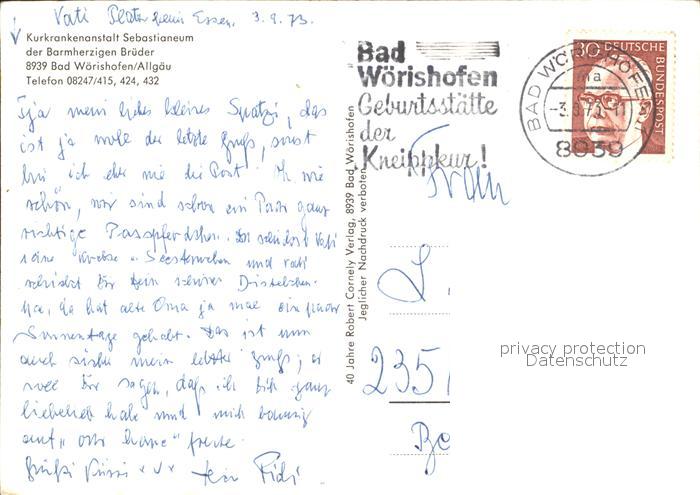 Vati Essen. 3.9.73.
Kurkrankenanstalt Sebastianeum
der Barmherzigen Brüder
8939 Bad Wörishofen/Allgäu
Telefon 08247/415, 424, 432
Tja mein liebes kleines Spatzi, das
ist ja wohl der letzte Gruß, sonst
bin ich eher wie die Post. Oh wie
schön, wir sind schon ein Paar ganz
richtige Du schickst Vati
seine und Vati
schickt Dir Dein
Na, da hat alte Oma ja mal ein paar
Sonnentage gehabt. Das ist nun
auch sicher mein letzter Gruß; er
soll Dir sagen, daß ich Dich ganz
liebend hab und mich
auf "at home" freue.
Grüßi Dein Fidi
40 Jahre Robert Cornely Verlag, 8939 Bad Wörishofen
Jeglicher Nachdruck verboten
Bad
Wörishofen
Geburtsstätte
der
Kneippkur!
BAD WÖRISHOFEN 1
ma
-3.9.73-11
8939
30 DEUTSCHE
BUNDESPOST
Frau
L.
235
Bo
privacy protection
Datenschutz